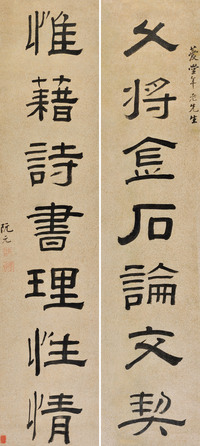 堂年老先生
久將金石論交契
惟藉詩書理性情
阮元